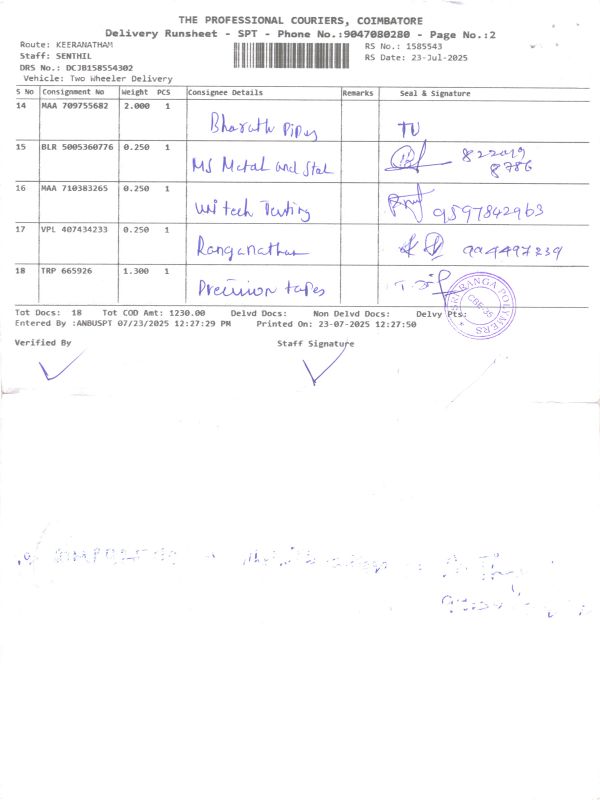 THE PROFESSIONAL COURIERS, COIMBATORE
Delivery Runsheet - SPT - Phone No.:9047080280 - Page No.:2
Route: KEERANATHAM
RS No.: 1585543
Staff: SENTHIL
RS Date: 23-Jul-2025
DRS No.: DCJB158554302
Vehicle: Two Wheeler Delivery
S No Consignment No Weight PCS Consignee Details Remarks Seal & Signature
14 MAA 709755682 2.000 1 Bharath Pipes
15 BLR 5005360776 0.250 1 MS Metal and Stal 822019
8786
16 MAA 710383265 0.250 1 Uni tech Testing 9597842963
17 VPL 407434233 0.250 1 Ranganathan 994497239
18 TRP 665926 1.300 1 Precision tapes
SRI RANGA POLYMERS
CBE-35
Tot Docs: 18 Tot COD Amt: 1230.00 Delvd Docs: Non Delvd Docs: Delvy Pts:
Entered By :ANBUSPT 07/23/2025 12:27:29 PM Printed On: 23-07-2025 12:27:50
Verified By Staff Signature